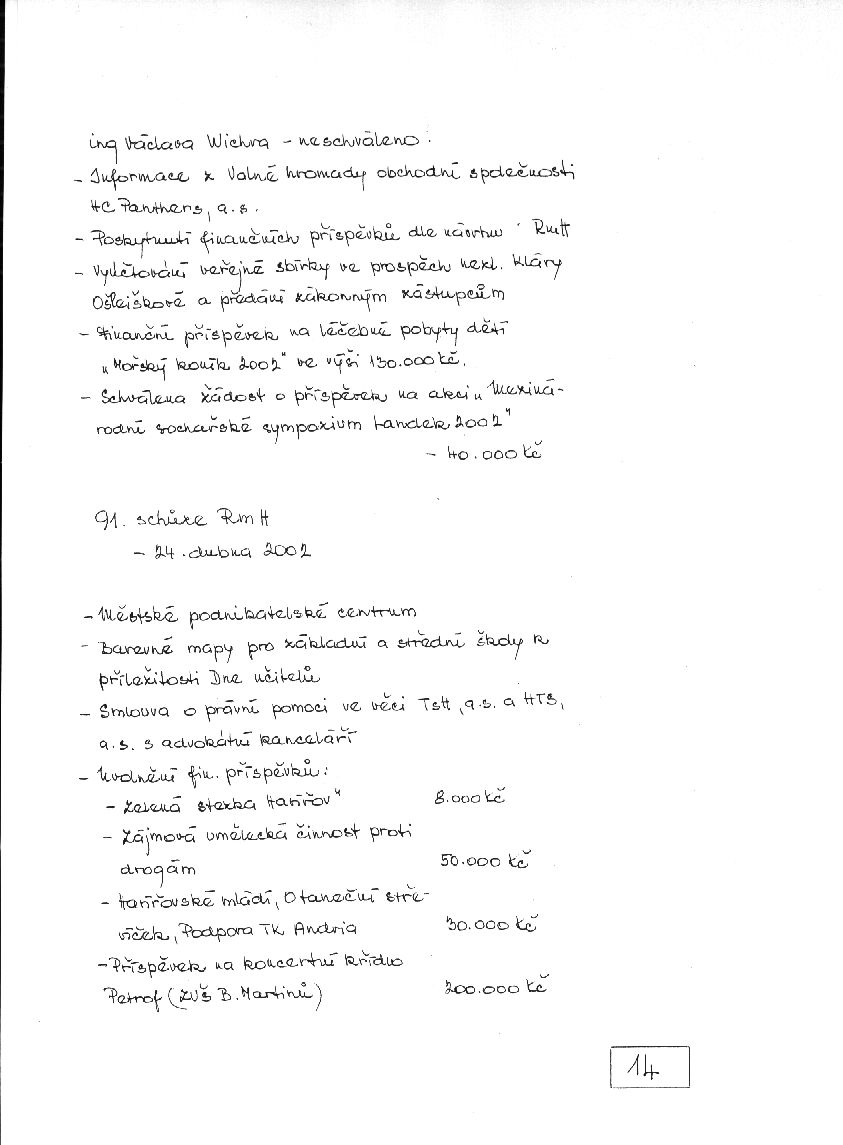 ing Václava Wichra - neschváleno.
- Informace z Valné hromady obchodní společnosti
HC Panthers, a.s.
- Poskytnutí finančních příspěvků dle návrhu RmH
- Vyúčtování veřejné sbírky ve prospěch nezl. Kláry
Ošlejškové a předání zákonným zástupcům
- Finanční příspěvek na léčebné pobyty dětí
"Mořský koník 2002" ve výši 130.000 Kč.
- Schválena žádost o příspěvek na akci "Meziná-
rodní sochařské sympozium Landek 2002"
- 40.000 Kč
91. schůze RmH
- 24. dubna 2002
- Městské podnikatelské centrum
- Barevné mapy pro základní a střední školy k
příležitosti Dne učitelů
- Smlouva o právní pomoci ve věci TSH, a.s. a HTS,
a.s. s advokátní kanceláří
- Uvolnění fin. příspěvků:
- Zelená stezka Havířov" 8.000 Kč
- Zájmová umělecká činnost proti
drogám 50.000 Kč
- Havířovské mládí, O taneční stře-
víček, Podpora TK Andria 30.000 Kč
- Příspěvek na koncertní křídlo
Petrof (ZUŠ B. Martinů) 200.000 Kč
14